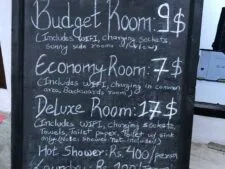 Budget Room: 9$
(Includes WIFI, charging sockets,
sunny side rooms
Economy Room: 7$
(Includes WIFI, charging in common
area, Backwards room)
Deluxe Room: 17$
(Includes WIFI, charging sockets,
Towels, Toilet paper, Toilet w/ sink
only (Note: Shower not included)
Hot Shower: Rs. 400/person